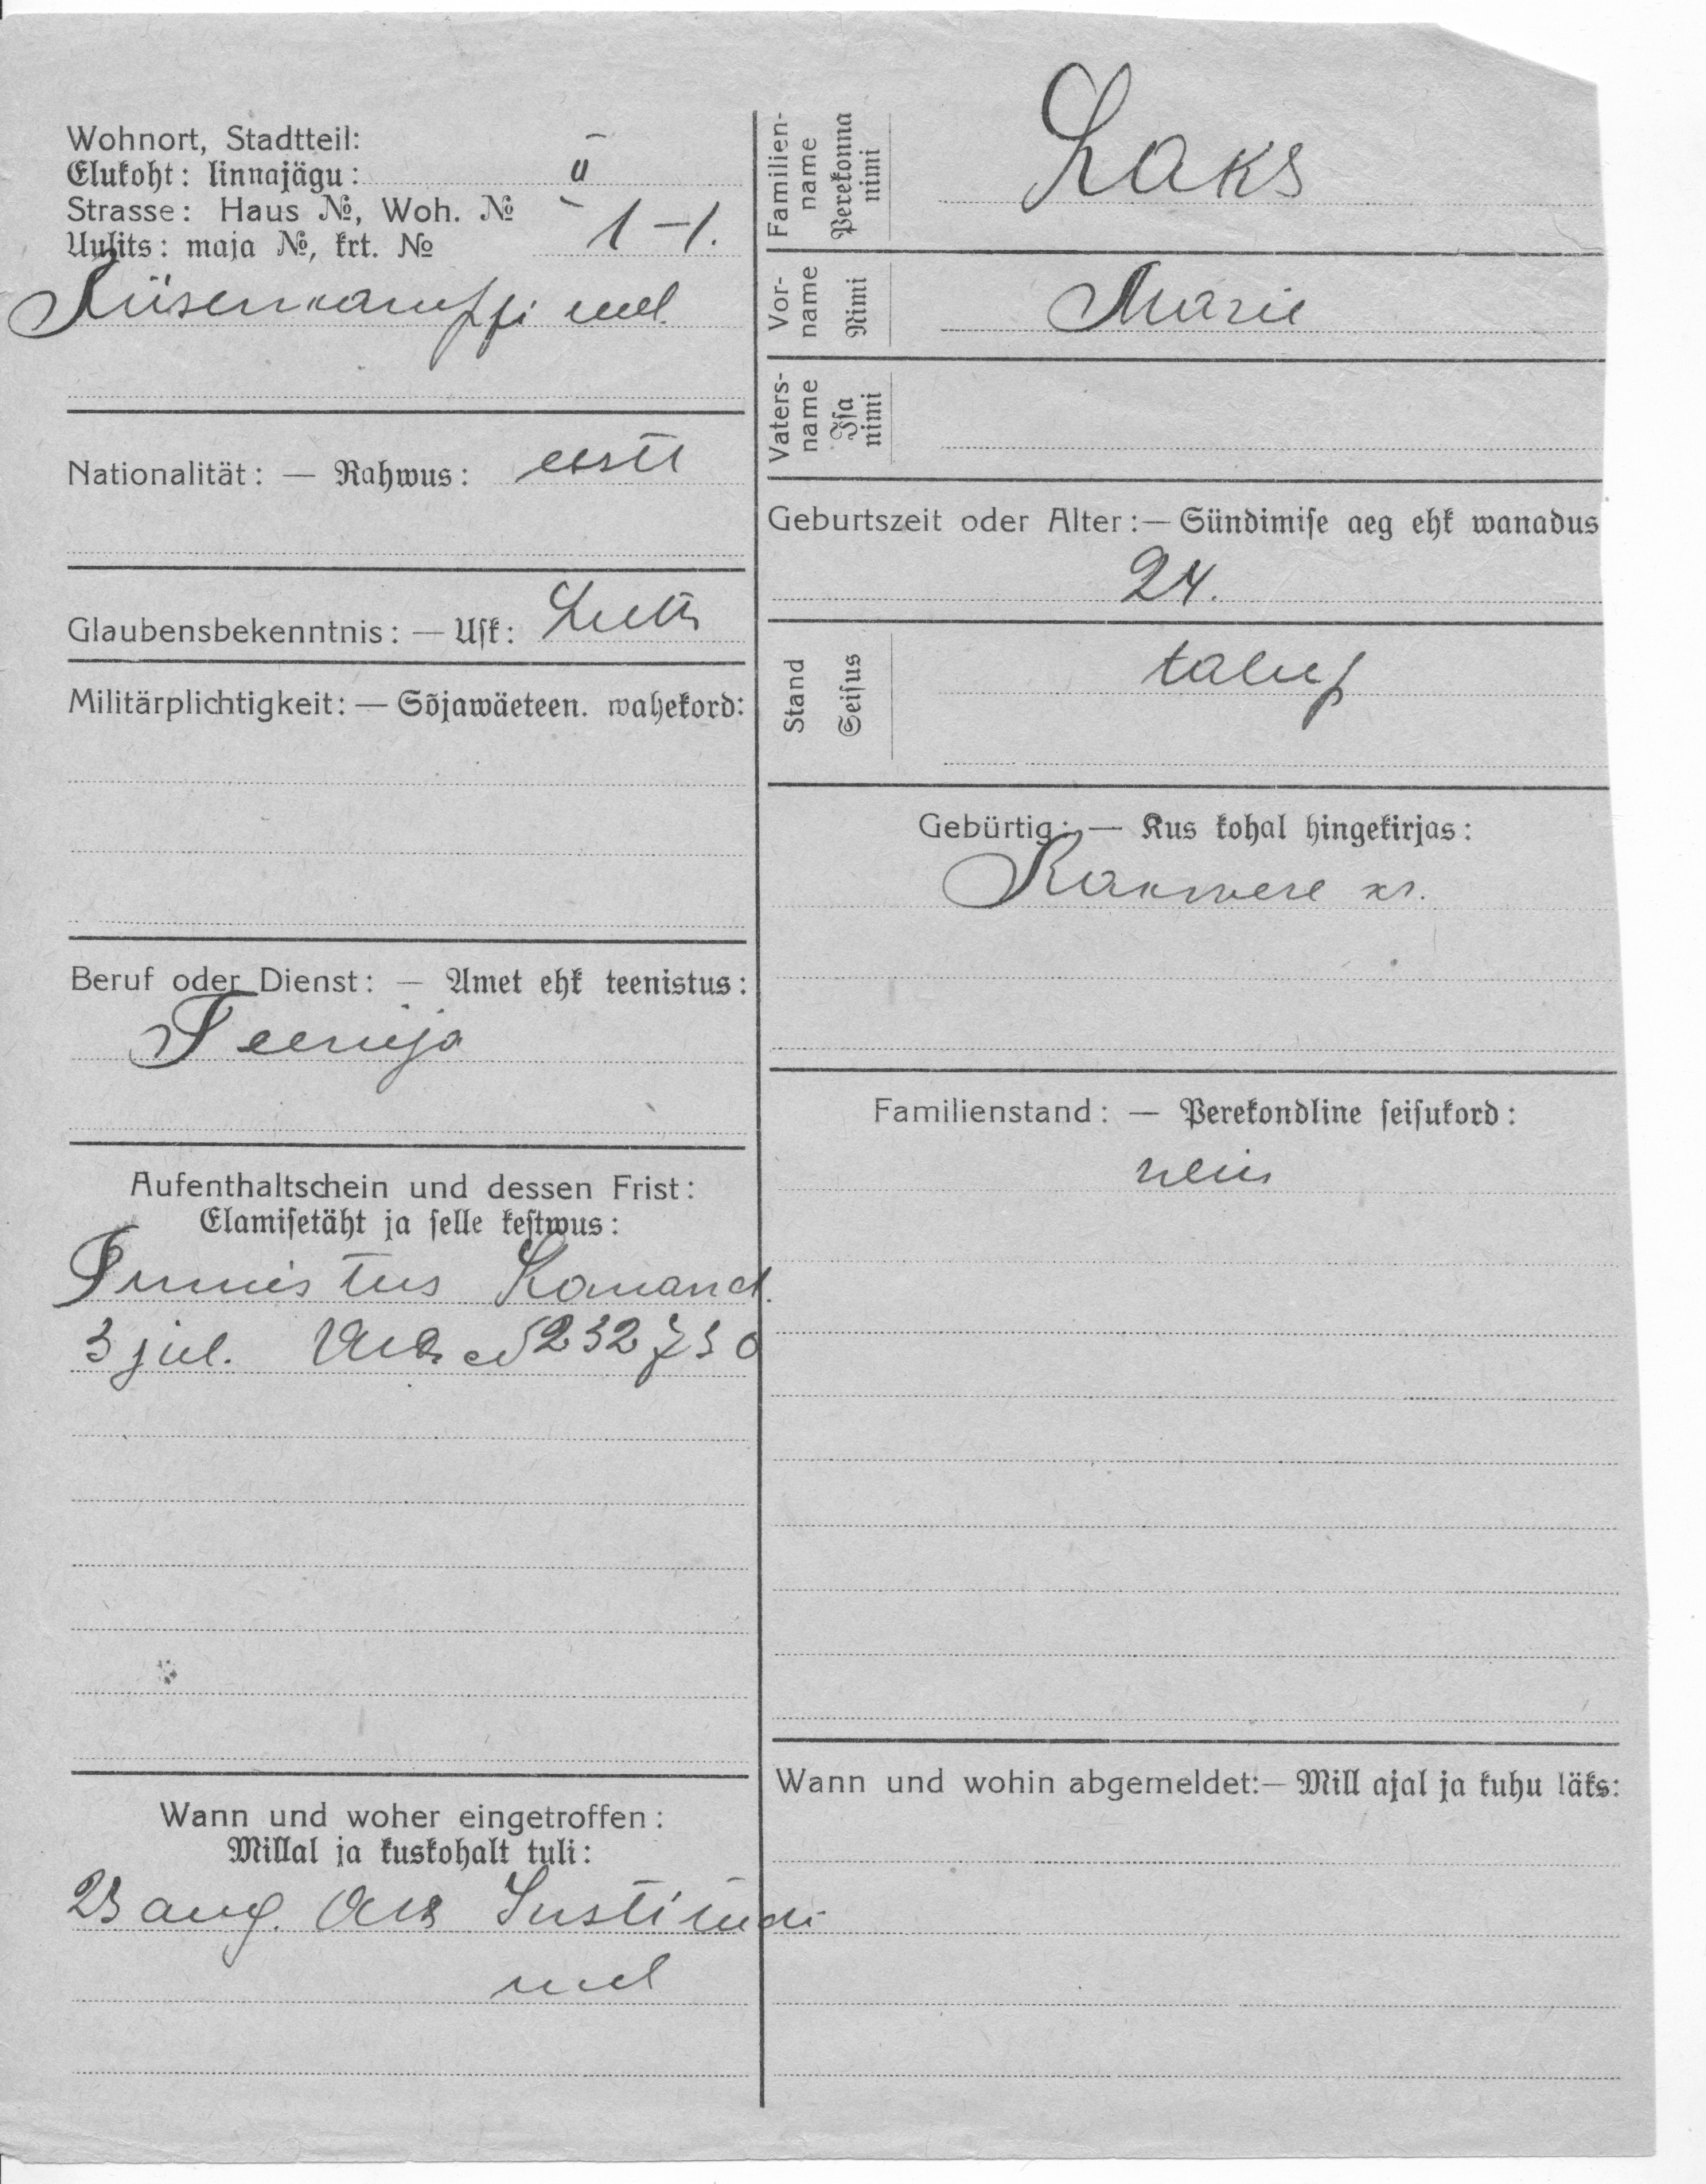 Wohnort, Stadtteil:
Elukoht: linnajägu: II
Strasse: Haus №, Woh. №
Uulits: maja №, krt. № 1-1.
Küsenkampfi uul.
Nationalität: — Rahwus: eesti
Glaubensbekenntnis: — Usk: Luth
Militärplichtigkeit: — Sõjawäeteen. wahekord:
Beruf oder Dienst: — Amet ehk teenistus:
Teenija
Aufenthaltschein und dessen Frist:
Elamisetäht ja selle kestwus:
Tunnistus Komand.
3 jul. № 232730
Wann und woher eingetroffen:
Millal ja kuskohalt tuli:
23 aug.
uul
Familien-
name
Perekonna
nimi
Laks
Vor-
name
Nimi
Marie
Vaters-
name
Isa
nimi
Geburtszeit oder Alter:— Sündimise aeg ehk wanadus
24.
Stand
Seisus
talup
Gebürtig: — Kus kohal hingekirjas:
Rakwere kr.
Familienstand: — Perekondline seisukord:
Wann und wohin abgemeldet:— Mill ajal ja kuhu läks: